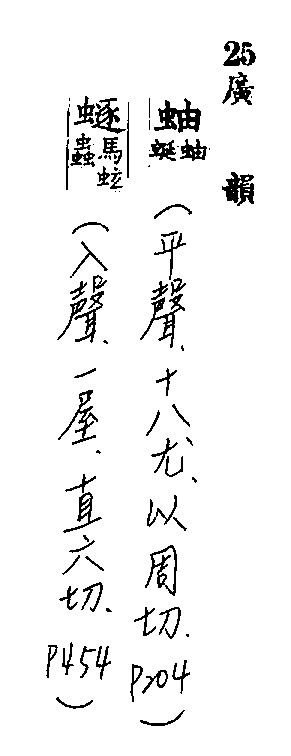 25廣韻
蚰
蜒蚰
(平聲、十八尤、以周切、P204)
豁
馬蚿
蟲
(入聲、一屋、直六切、P454)